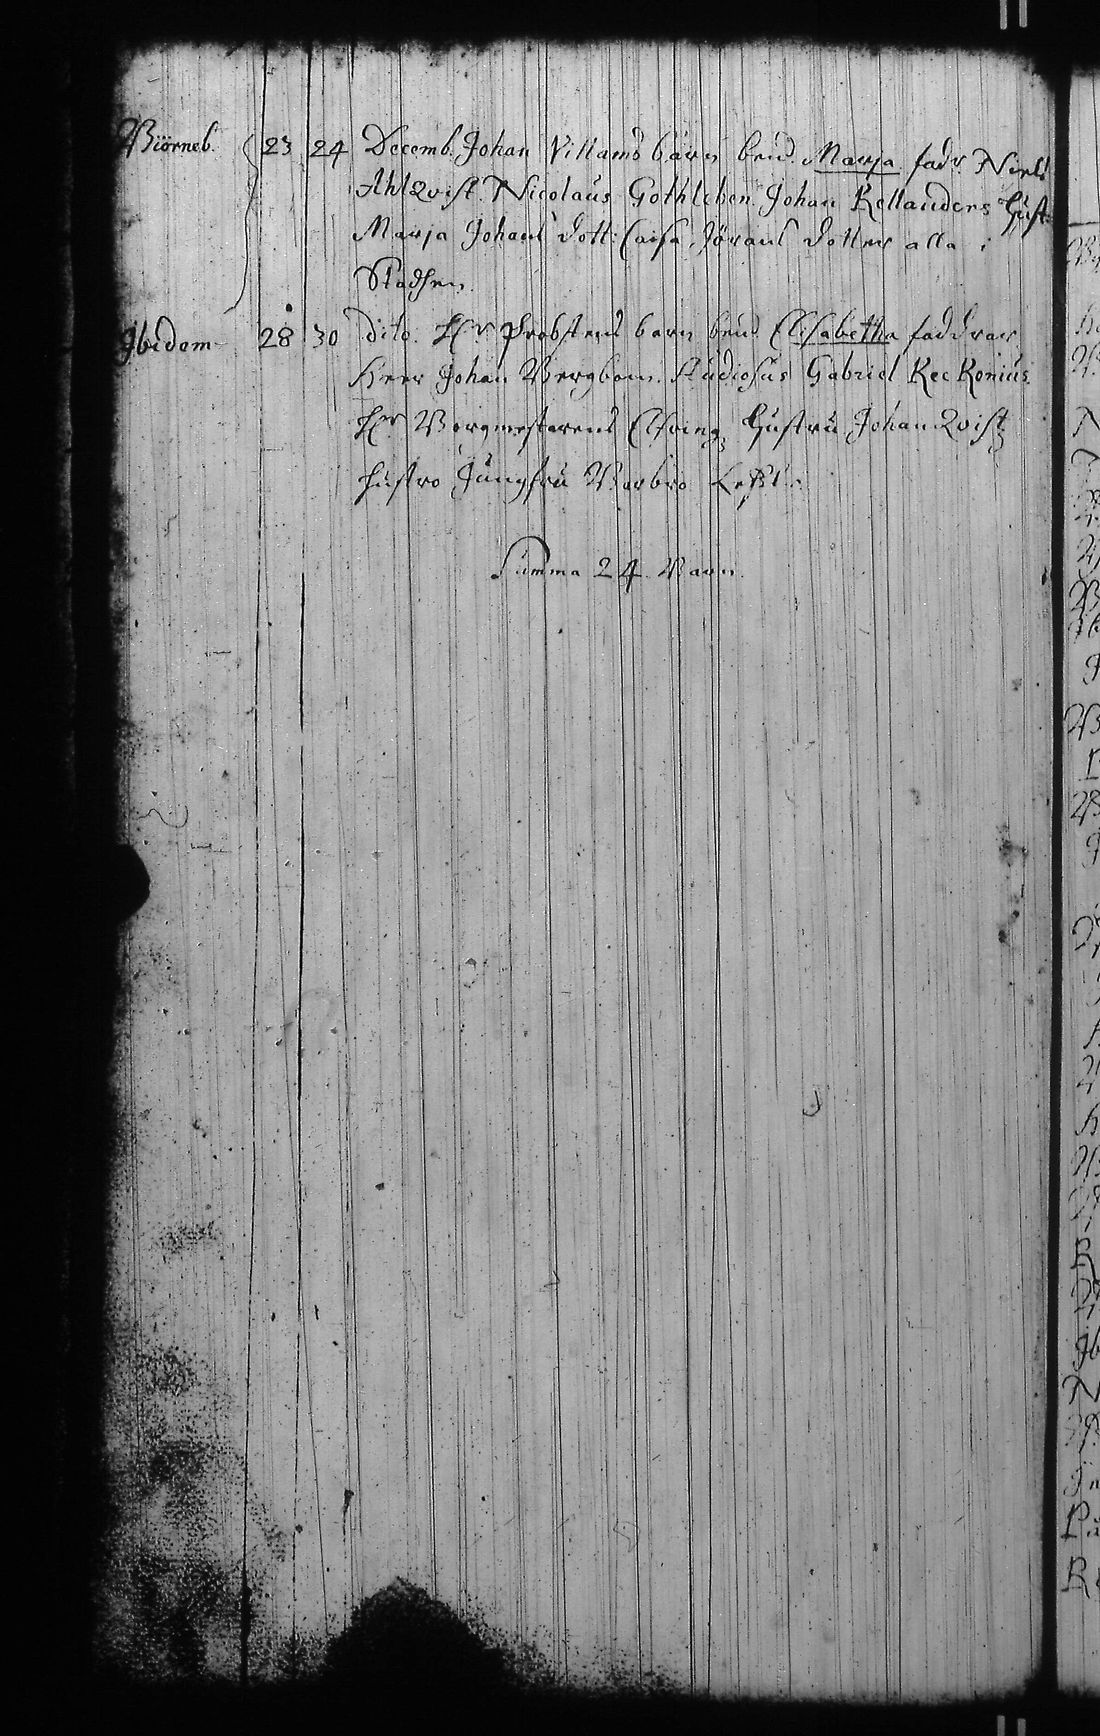 Biörneb. 23 24 Decemb. Johan Villams barn bend. Marja fadr. Niels
Ahlqvist. Nicolaus Gothleben Johan Kellanders Hust:
Marja Johans dott: Caisa Jörans dotter alla i
Stadhen
Ibidem 28 30 dito. Hr Probstens barn bend. Elisabetha faddrar
Herr Johan Bergbom. Studiosus Gabriel Keckonius.
Hr Borgmestarens Hustru Johan Qvist
hustro Jungfru Barbro
Summa 24 Barn.